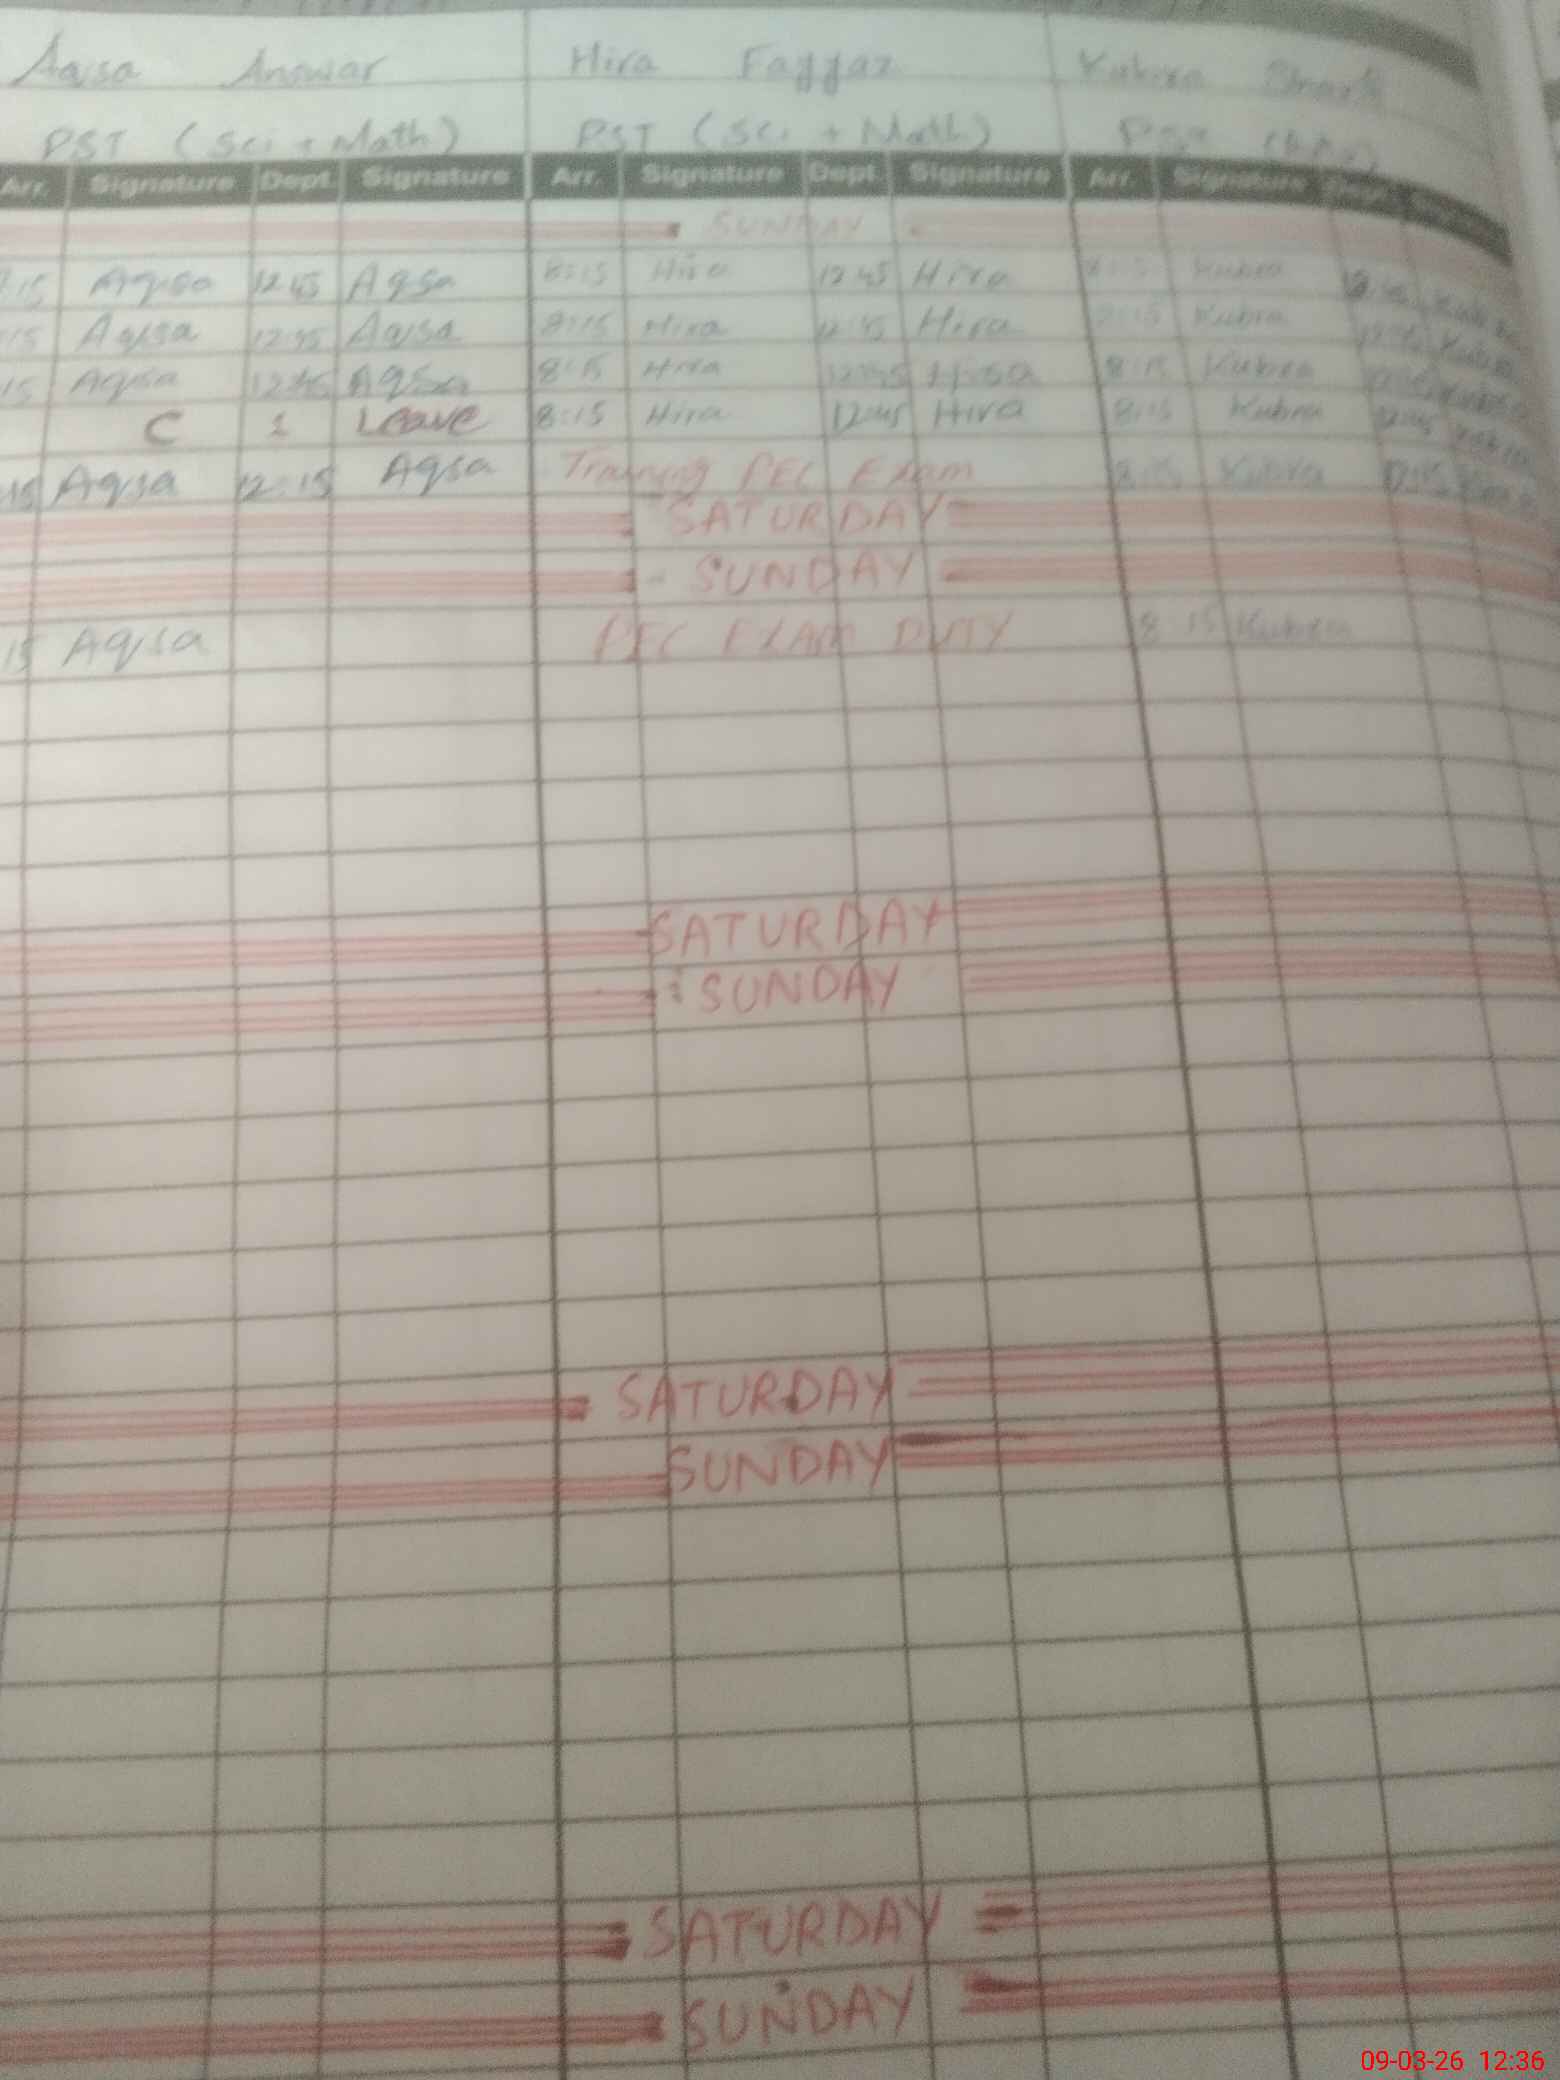 Aqsa Answar Hira Fayyaz Kubra
PST (Sci + Math) PST (Sci + Math)
Arr. Signature Dept. Signature Arr. Signature Dept. Signature Arr. Signature Dept.
SUNDAY
:15 Aqsa 12:45 Aqsa 8:15 Hira 12:45 Hira Kubra
15 Aqsa 12:45 Aqsa 8:15 Hira 12:45 Hira Kubra
15 Aqsa 12:45 Aqsa 8:15 Hira 12:45 Hira 8:15 Kubra
C 1 Leave 8:15 Hira 12:45 Hira 8:15 Kubra 12:45 Kubra
15 Aqsa 12:15 Aqsa Training PEC Exam 8:15 Kubra 12:15
SATURDAY
SUNDAY
15 Aqsa PEC EXAM DUTY 8 15 Kubra
SATURDAY
SUNDAY
SATURDAY
SUNDAY
SATURDAY
SUNDAY
09-03-26 12:36